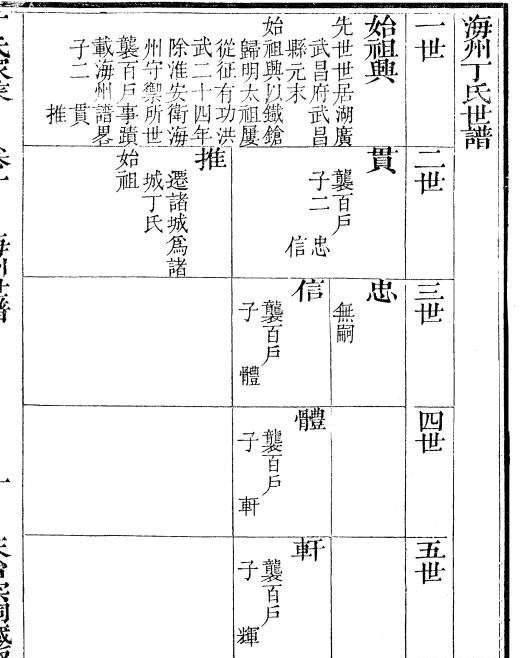 海州丁氏世譜
一世
始祖興
先世世居湖廣
武昌府武昌
縣元末
始祖興以鐵鎗
歸明太祖屢
從征有功洪
武二十四年
除淮安衛海
州守禦所世
襲百戶事蹟
載海州譜畧
子二
貫
推
二世
貫
襲百戶
子二
忠
信
推
遷諸城爲諸
城丁氏
始祖
三世
忠
無嗣
信
襲百戶
子
體
四世
體
襲百戶
子
軒
五世
軒
襲百戶
子
輝
海州世譜
一